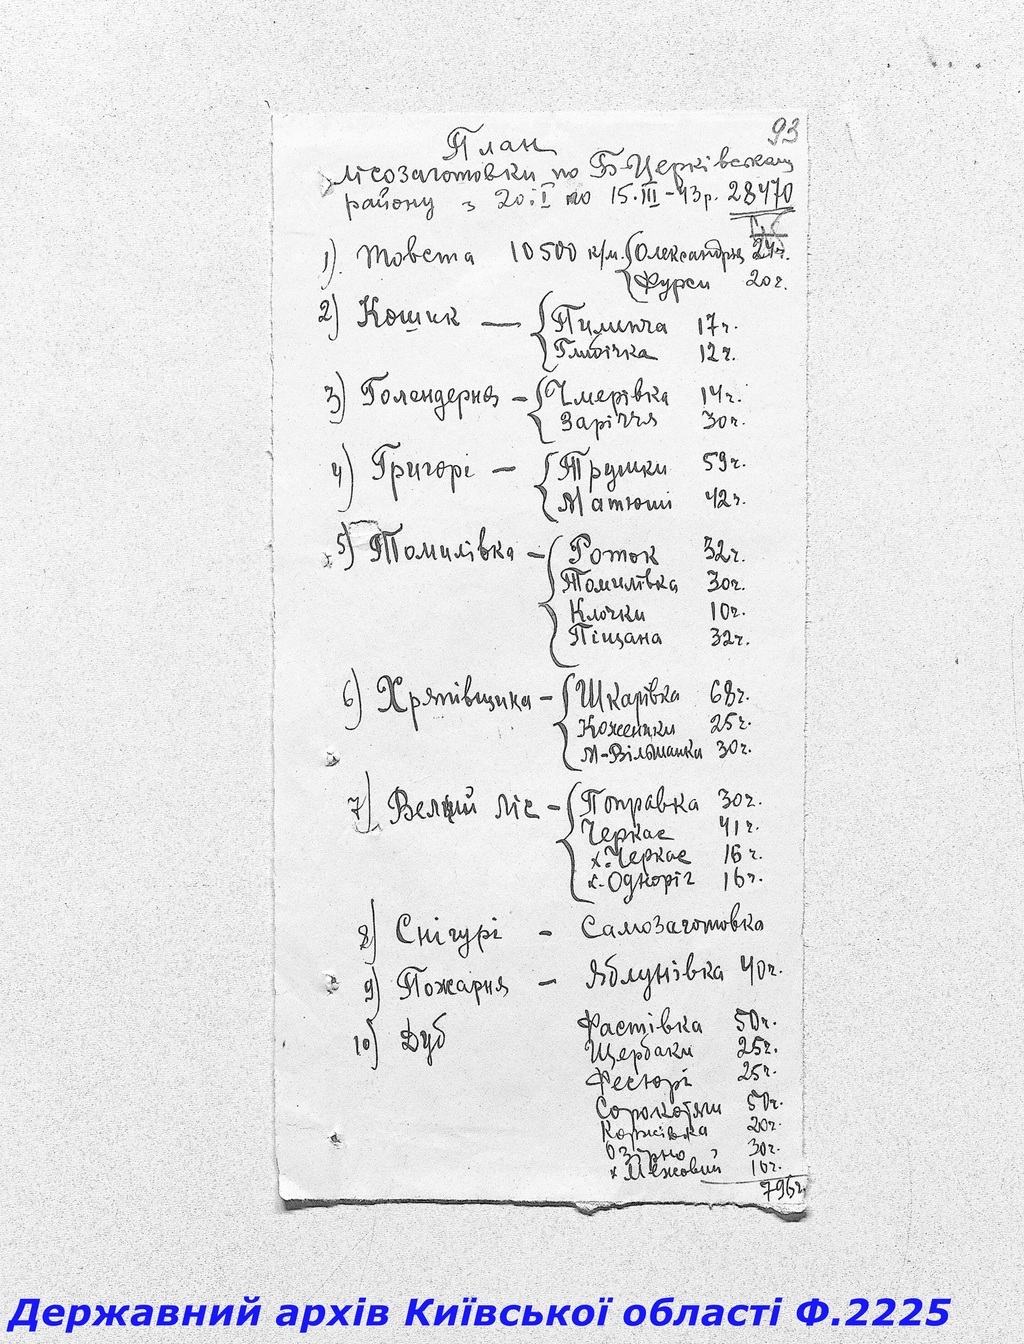 93
План
лісозаготовки по Б-Церківськом
району з 20.I по 15.III-43р. 28470
1). Товста 10500 к/м. { Олександрія 24ч.
Фурси 20ч.
2) Кошик — { Пилипча 17ч.
Глибічка 12ч.
3) Голендерня - { Чмерівка 14ч.
Заріччя 30ч.
4) Григорі - { Трушки 59ч.
Матюші 42ч.
5) Томилівка - { Роток 32ч.
Томилівка 30ч.
Клочки 10ч.
Піщана 32ч.
6) Хрятівщина - { Шкарівка 68ч.
Коженики 25ч.
М-Вільшанка 30ч.
7) Велкий Ліс - { Поправка 30ч.
Черкас 41ч.
х. Черкас 16ч.
х. Одноріг 16ч.
8) Снігурі - Самозаготовка
9) Пожарня - Яблунівка 40ч.
10) Дуб Фастівка 50ч.
Щербаки 25ч.
Фесюрі 25ч.
Сорокотяги 50ч.
Коржівка 20ч.
Озірно 30ч.
х Межовий 16ч.
796ч.
Державний архів Київської області Ф.2225